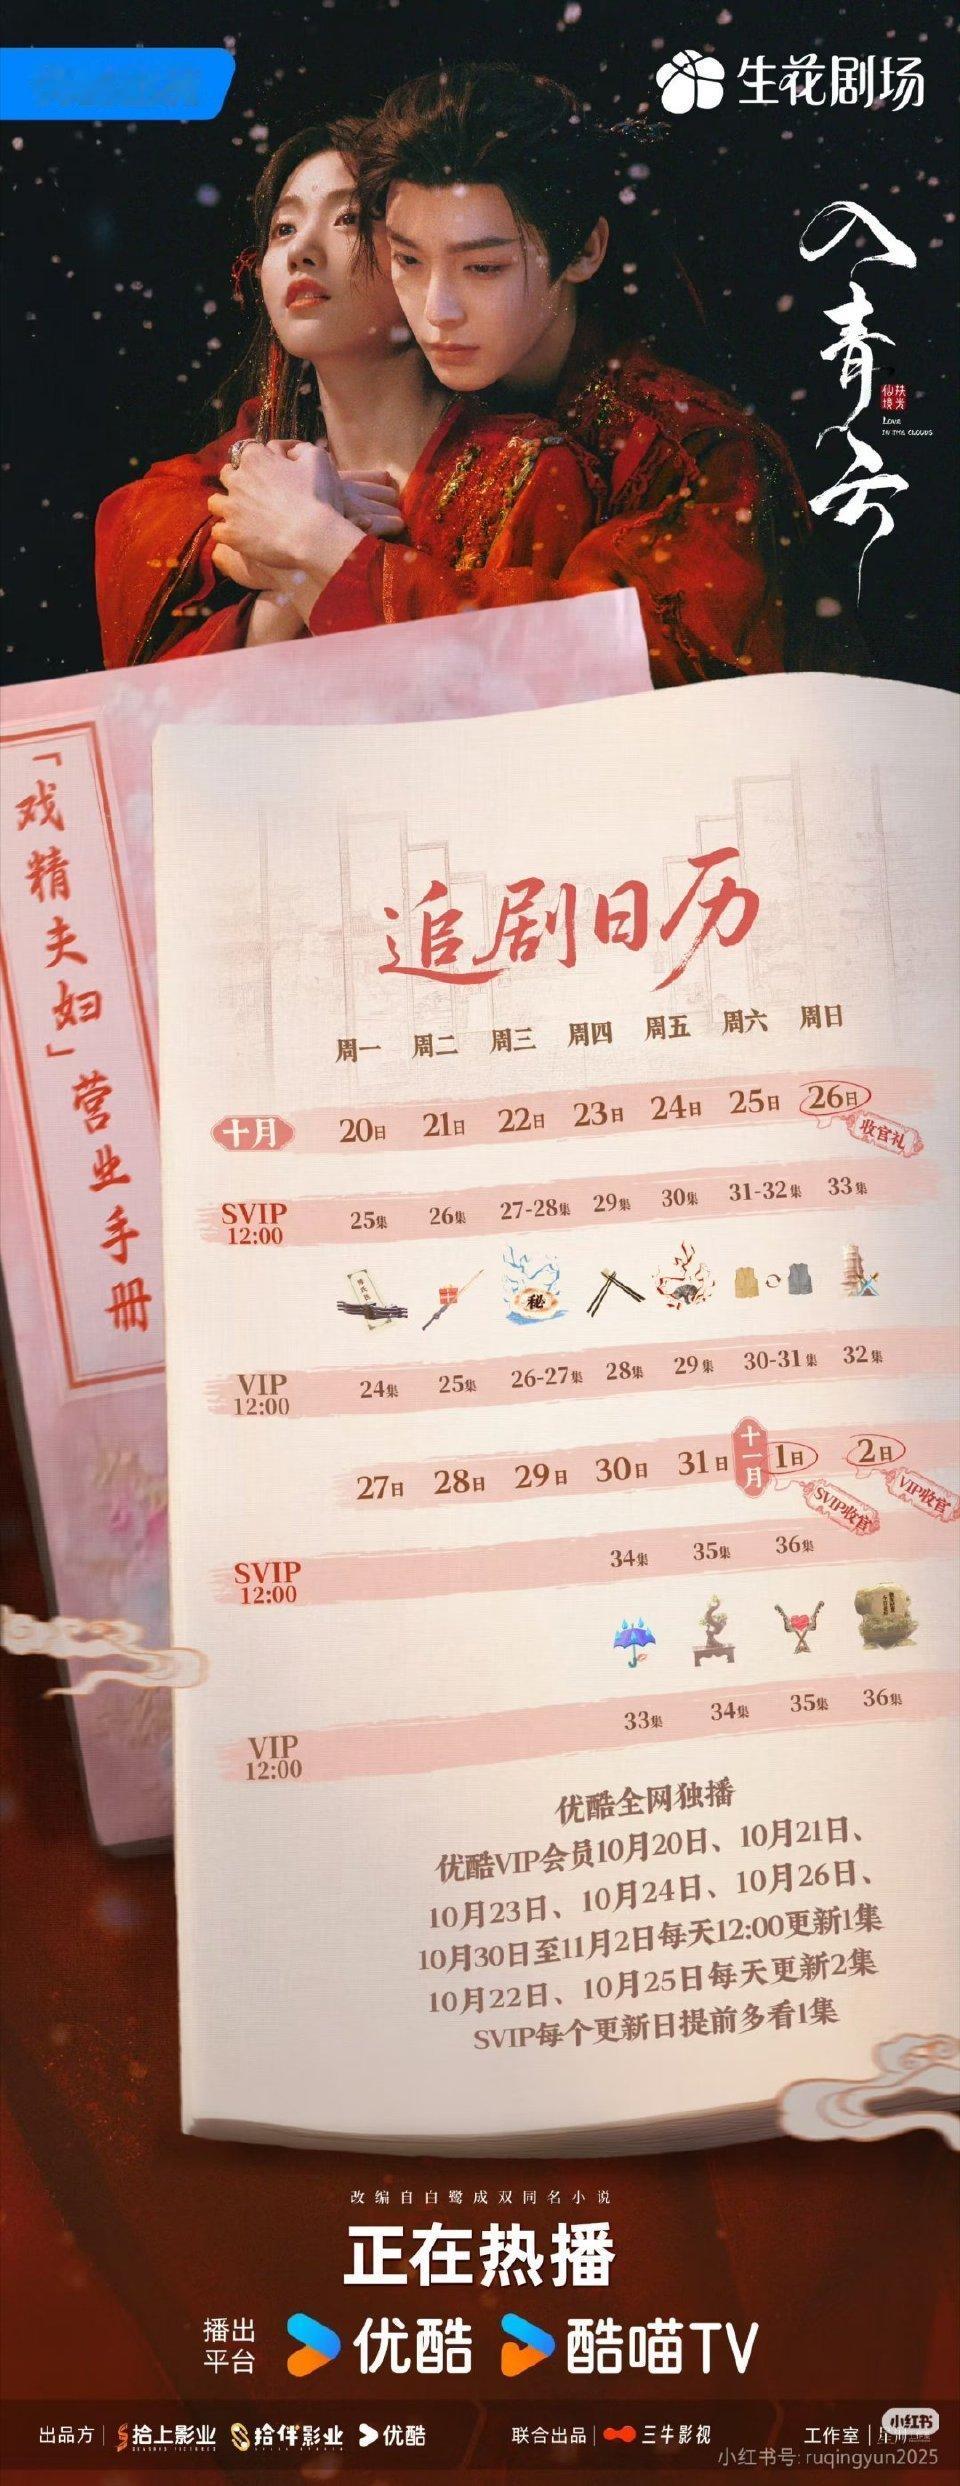 生花剧场
入青云
扶光
仙境
LOVE
IN THE CLOUDS
「戏精夫妇」营业手册
追剧日历
周一 周二 周三 周四 周五 周六 周日
十月 20日 21日 22日 23日 24日 25日 26日
收官礼
SVIP 25集 26集 27-28集 29集 30集 31-32集 33集
12:00
秘
VIP 24集 25集 26-27集 28集 29集 30-31集 32集
12:00
27日 28日 29日 30日 31日 十一月 1日 2日
SVIP收官 VIP收官
SVIP 34集 35集 36集
12:00
VIP 33集 34集 35集 36集
12:00
优酷全网独播
优酷VIP会员10月20日、10月21日、
10月23日、10月24日、10月26日、
10月30日至11月2日每天12:00更新1集
10月22日、10月25日每天更新2集
SVIP每个更新日提前多看1集
改编自白鹭成双同名小说
正在热播
播出平台 优酷 酷喵TV
出品方 拾上影业 拾伴影业 优酷 联合出品 三牛影视 工作室
小红书
小红书号: ruqingyun2025